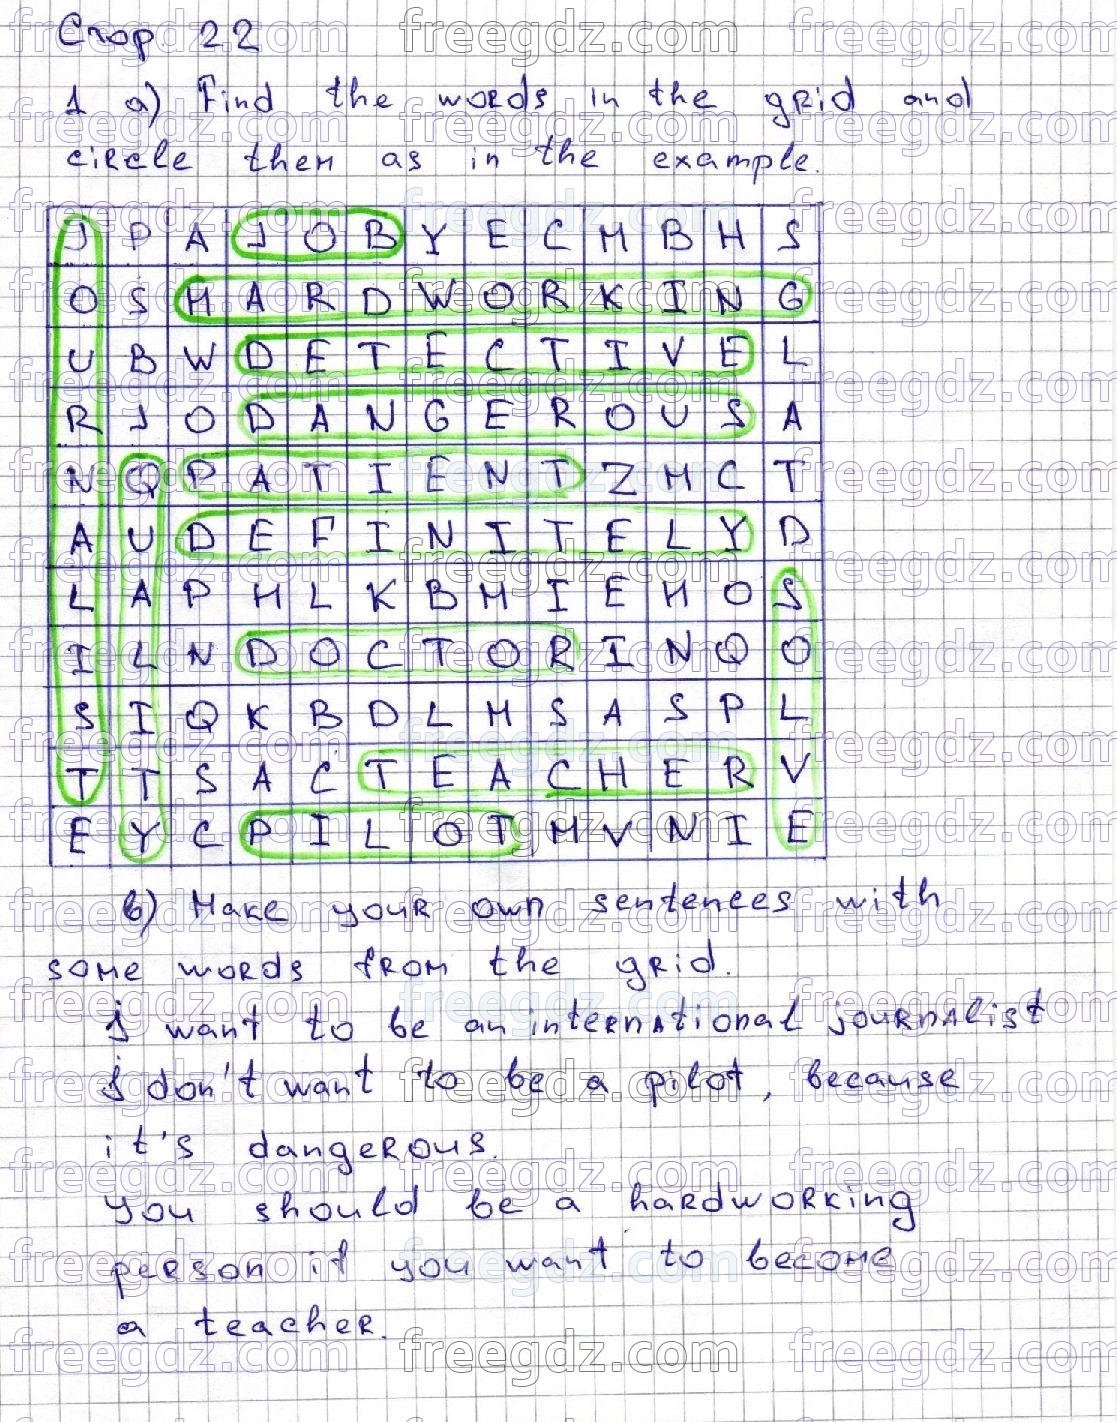 Стор. 22
1 a) Find the words in the grid and
circle them as in the example.
J P A J O B Y E C M B H S
O S H A R D W O R K I N G
U B W D E T E C T I V E L
R J O D A N G E R O U S A
N Q P A T I E N T Z M C T
A U D E F I N I T E L Y D
L A P H L K B M I E H O S
I L N D O C T O R I N Q O
S I Q K B D L H S A S P L
T T S A C T E A C H E R V
E Y C P I L O T M V N I E
b) Make your own sentences with
some words from the grid.
I want to be an international journalist
I don't want to be a pilot, because
it's dangerous.
You should be a hardworking
person if you want to become
a teacher.
freegdz.com